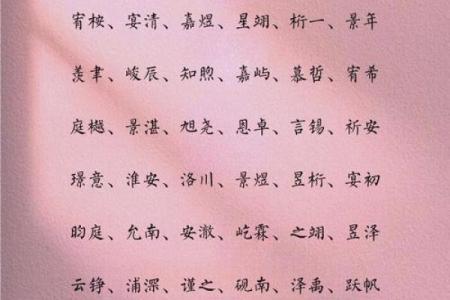 宥桉、宴清、嘉煜、星翊、桁一、景年
羡聿、峻辰、知煦、嘉屿、慕哲、宥希
庭樾、景湛、旭尧、恩卓、言锡、祈安
璟意、淮安、洛川、景煜、昱桁、宴初
昀庭、允南、安澈、屹霖、之翊、昱泽
云铮、浦深、谨之、砚南、泽禹、跃帆